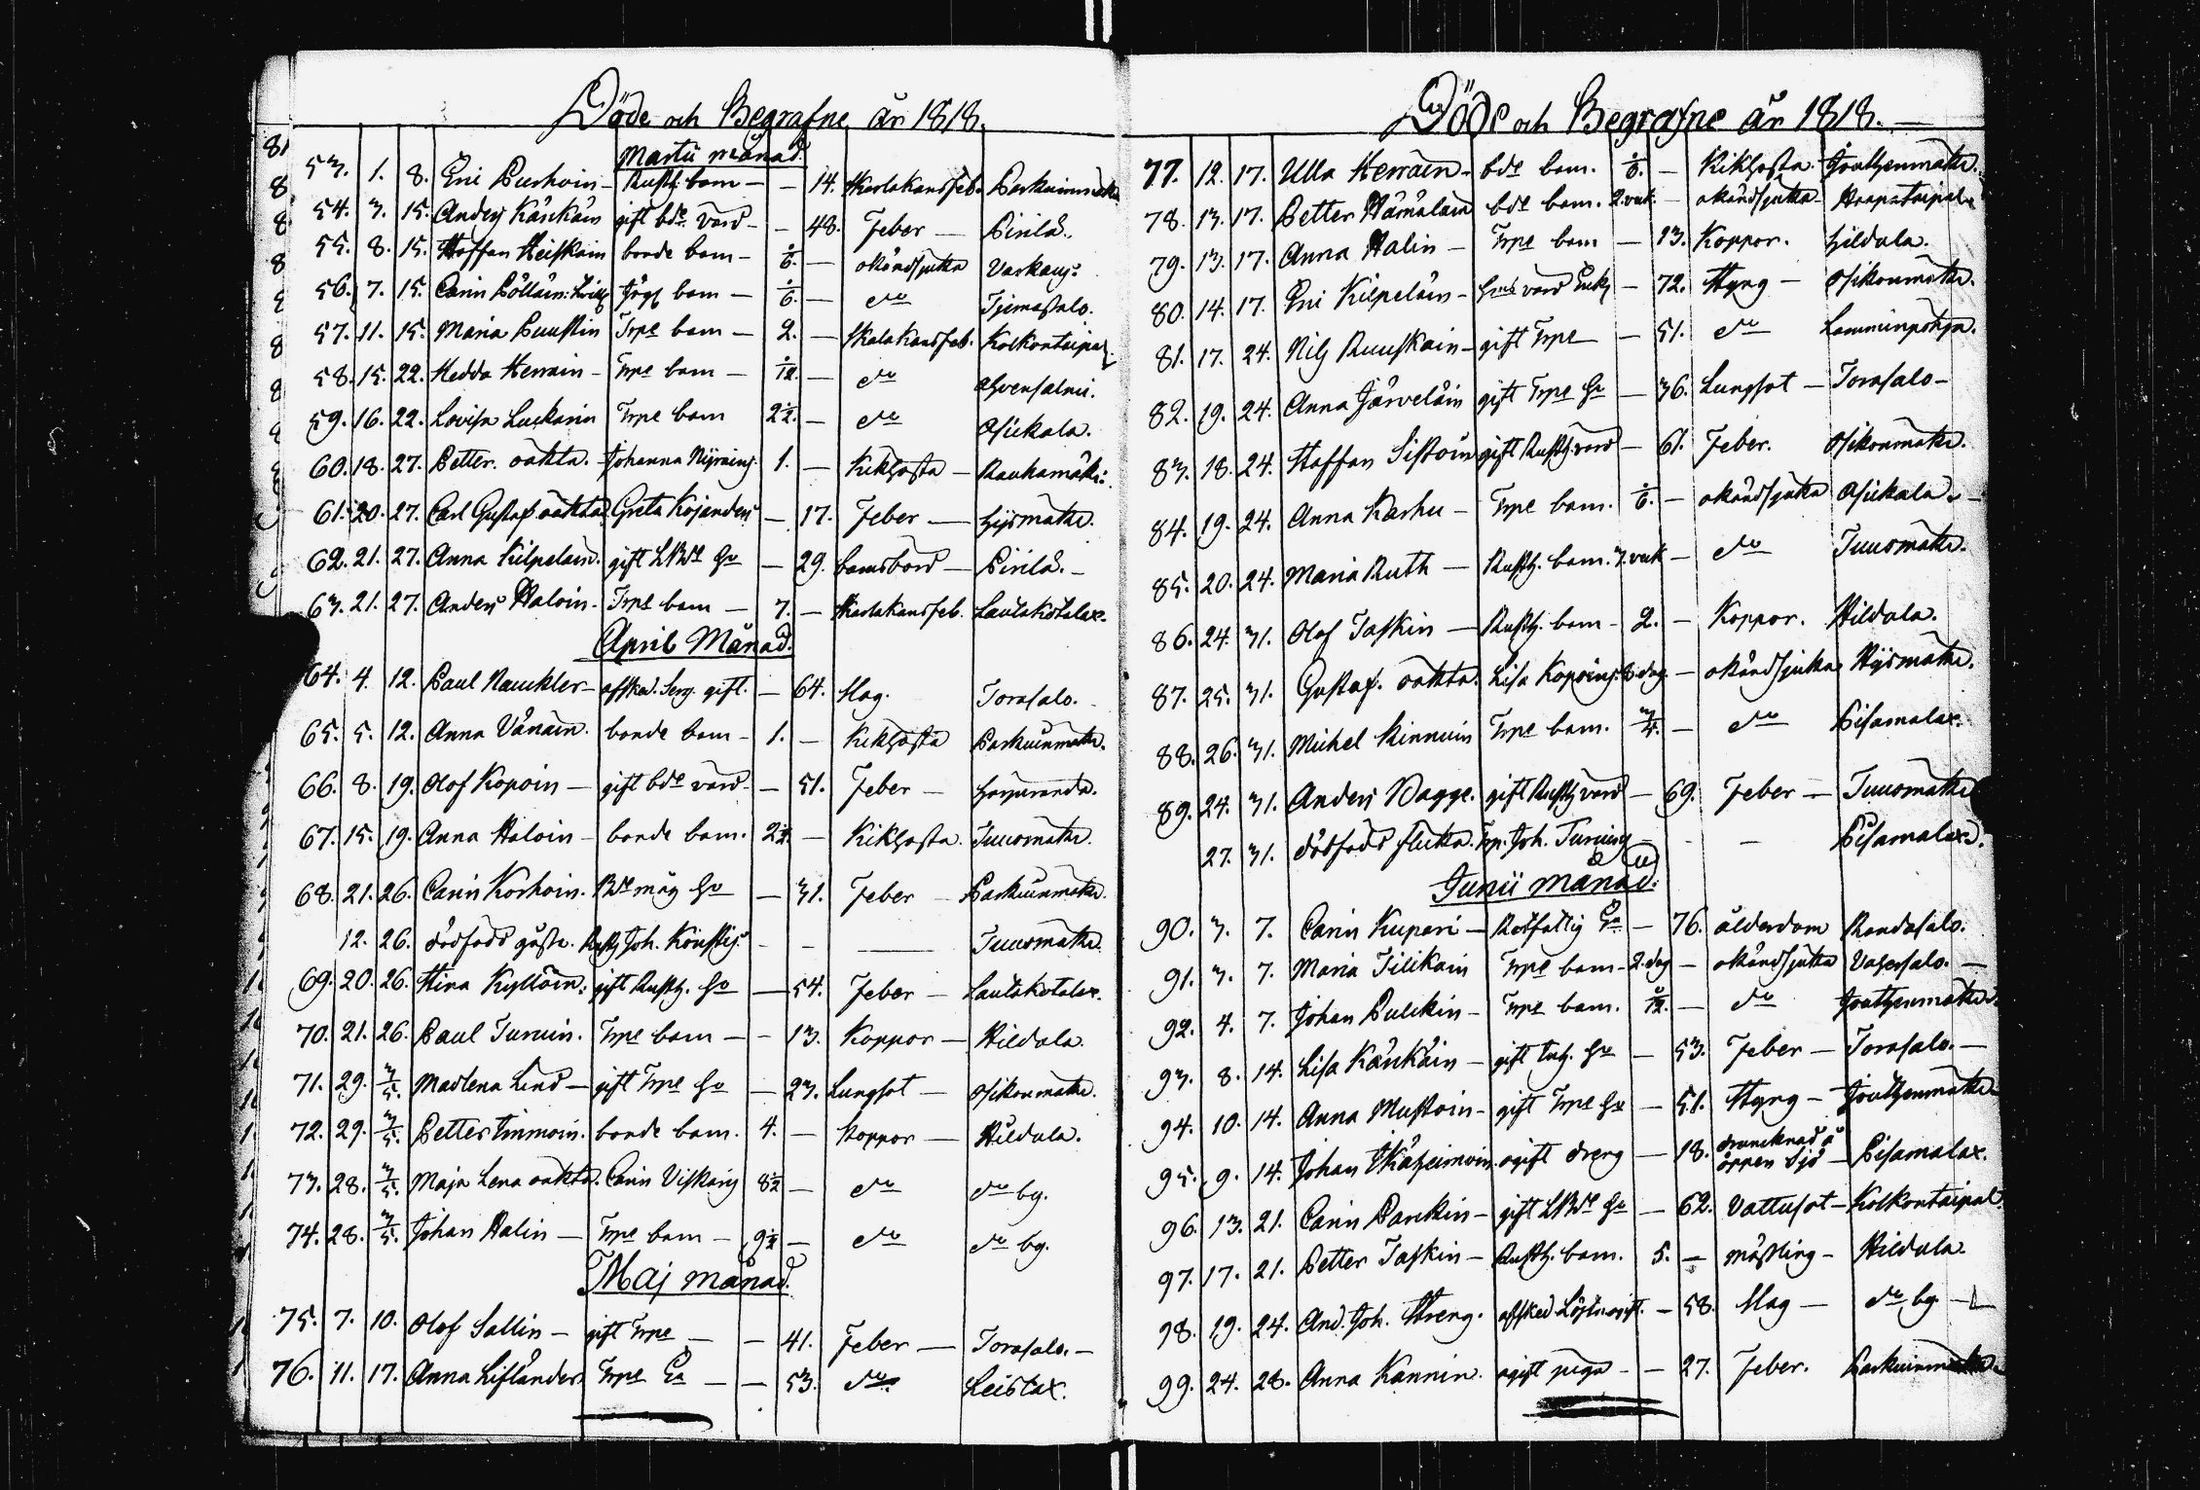 Döde och Begrafne år 1818.
Martii månad.
53. 1. 8. Eni Purhoin - Rusth. barn - - 14. Skarlakansfeb. Parkuinmäki
54. 3. 15. Anders Känkäin gift bde. värd - - 48. Feber - Pirilä.
55. 8. 15. Staffan Heiskain bonde barn - 1/6. - okänd sjukd. Varkaus.
56. 7. 15. Carin Pölläin: barn - 1/6. - do
57. 11. 15. Maria Puustin Trpe barn - 2. - Skalakansfeb. Kolkontaipal.
58. 15. 22. Hedda Herrain - Trpe barn - 1/12. - do Ahvensalmi.
59. 16. 22. Lovisa Luckarin Trpe barn 2 1/2. - do Asickala.
60. 18. 27. Petter. oäkta. Johanna 1. - Kikhosta - Rauhamäki.
61. 20. 27. Carl Gustaf oäkta. Greta Kojanders - 17. Feber -
62. 21. 27. Anna Kilpeläin. gift LBde Hu - 29. barnsbörd - Pirilä. -
63. 21. 27. Anders Haloin. Trpe barn - 7. - Skarlakansfeb. Lautakotalax.
April Månad.
64. 4. 12. Paul Nauckler - afsked. Serg. gift. - 64. Slag. Torasalo.
65. 5. 12. Anna Vänäin. bonde barn - 1. - Kikhosta Parkuinmäki.
66. 8. 19. Olof Kopoin - gift bde värd - - 51. Feber - Harjuranda.
67. 15. 19. Anna Haloin - bonde barn. 2 1/2. - Kikhosta. Tuusmäki.
68. 21. 26. Carin Korhoin. Bde måg Hu - 31. Feber - Parkuinmäki.
12. 26. dödfödd gosse. Rusth Joh. - - Tuusmäki.
69. 20. 26. Stina Kyllöin. gift Rusth. Hu - 54. Feber - Lautakotalax.
70. 21. 26. Paul Turuin. Trpe barn - - 13. Koppor - Hildala.
71. 29. 3/5. Madlena Lind - gift Trpe Hu - 23. Lungsot - Osikonmäki.
72. 29. 3/5. Petter Tinnoin. bonde barn. 4. - Koppor - Hildala.
73. 28. 3/5. Maja Lena oäkta. Carin Viskains 8 1/2 - do do by.
74. 28. 3/5. Johan Halin - Trpe barn - 9 1/2 - do do by.
Maj månad.
75. 7. 10. Olof Sallin - gift Trpe - - 41. Feber - Torasalo. -
76. 11. 17. Anna Lifländer Trpe Ea - - 53. do. Leislax.
Döde och Begrafne år 1818. -
77. 12. 17. Ulla Herrain - bde barn. 1/6. - Kikhosta. Joutzenmäki.
78. 13. 17. Petter Hämäläin bde barn. 2. vek. - okänd sjukd. Haapataipal.
79. 13. 17. Anna Halin - Trpe barn - 13. Koppor. Hildala.
80. 14. 17. Eni Kilpeläin - värd Enk - 72. Styng - Osikonmäki.
81. 17. 24. Nils Ruuskain - gift Trpe - 51. do Lamminpohja.
82. 19. 24. Anna Järveläin gift Trpe Hu - 36. Lungsot - Torasalo -
83. 18. 24. Staffan Sistoin gift Rusth värd - 61. Feber. Osikonmäki.
84. 19. 24. Anna Karhu - Trpe barn. 1/6. - okänd sjukd Asickala. -
85. 20. 24. Maria Ruth - Rusth. barn. 3. vek - do Tuusmäki.
86. 24. 31. Olof Taskin - Rusth. barn - 2. - Koppor. Hildala.
87. 25. 31. Gustaf. oäkta. Lisa Kopoins 8. dag. - okänd sjukd
88. 26. 31. Michel Kinnuin Trpe barn. 3/4. - do Pisamalax.
89. 24. 31. Anders Vagge. gift Rusth värd - 69. Feber - Tuusmäki
27. 31. dödfödd flicka. Trp. Joh. Turuins - - - Pisamalax.
Junii månad.
90. 3. 7. Carin Kupari - Rotfattig Ea - 76. ålderdom Randasalo.
91. 3. 7. Maria Tilikain Trpe barn - 2. dag - okänd sjukd Vahersalo. -
92. 4. 7. Johan Pulckin - Trpe barn. /12. - do Joutzenmäki.
93. 8. 14. Lisa Känkäin - gift Inh. Hu - 53. Feber - Torasalo. -
94. 10. 14. Anna Mustoin - gift Trpe Hu - 51. Styng - Joutzenmäki
95. 9. 14. Johan ogift dreng - 18. drunknad å öppen Sjö - Pisamalax.
96. 13. 21. Carin Parckin - gift LBde Hu - 62. Vattusot - Kolkontaipal.
97. 17. 21. Petter Taskin - Rusth. barn. 5. - mässling - Hildala.
98. 19. 24. And. Joh. Streng. afsked gift. - 58. Slag - do by -
99. 24. 28. Anna Kannin. ogift piga - - 27. Feber. Parkuinmäki.